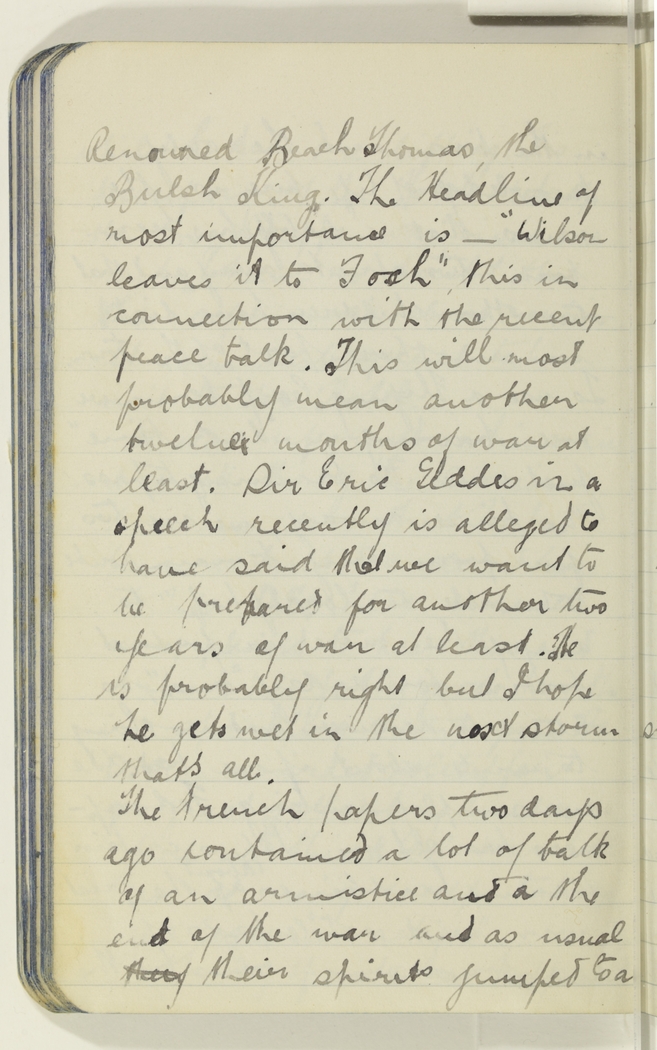 Renowned Beach Thomas, the
Bulsh King. The Headline of
most importance is — "Wilson
leaves it to Foch", this in
connection with the recent
peace talk. This will most
probably mean another
twelve months of war at
least. Sir Eric Geddes in a
speech recently is alleged to
have said that we want to
be prepared for another two
years of war at least. He
is probably right but I hope
he gets wet in the next storm
thats all.
The French papers two days
ago contained a lot of talk
of an armistice and a the
end of the war and as usual
they their spirits jumped to a